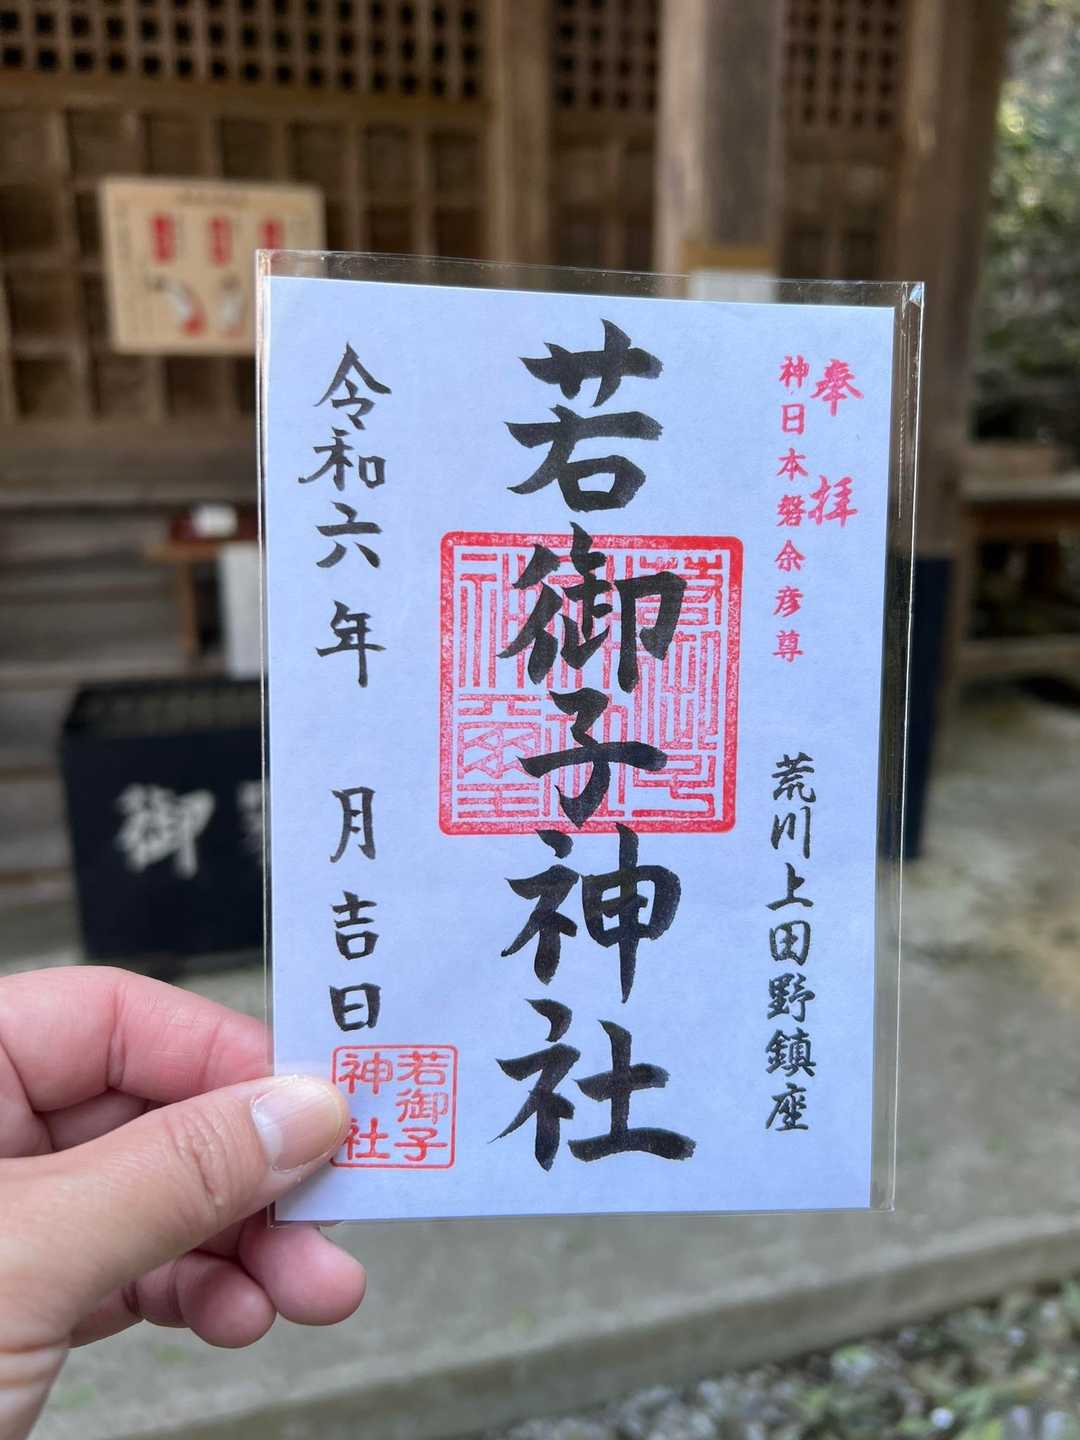 奉拝
神日本磐余彦尊
荒川上田野鎮座
若御子神社
令和六年 月吉日
若御子
神社
御